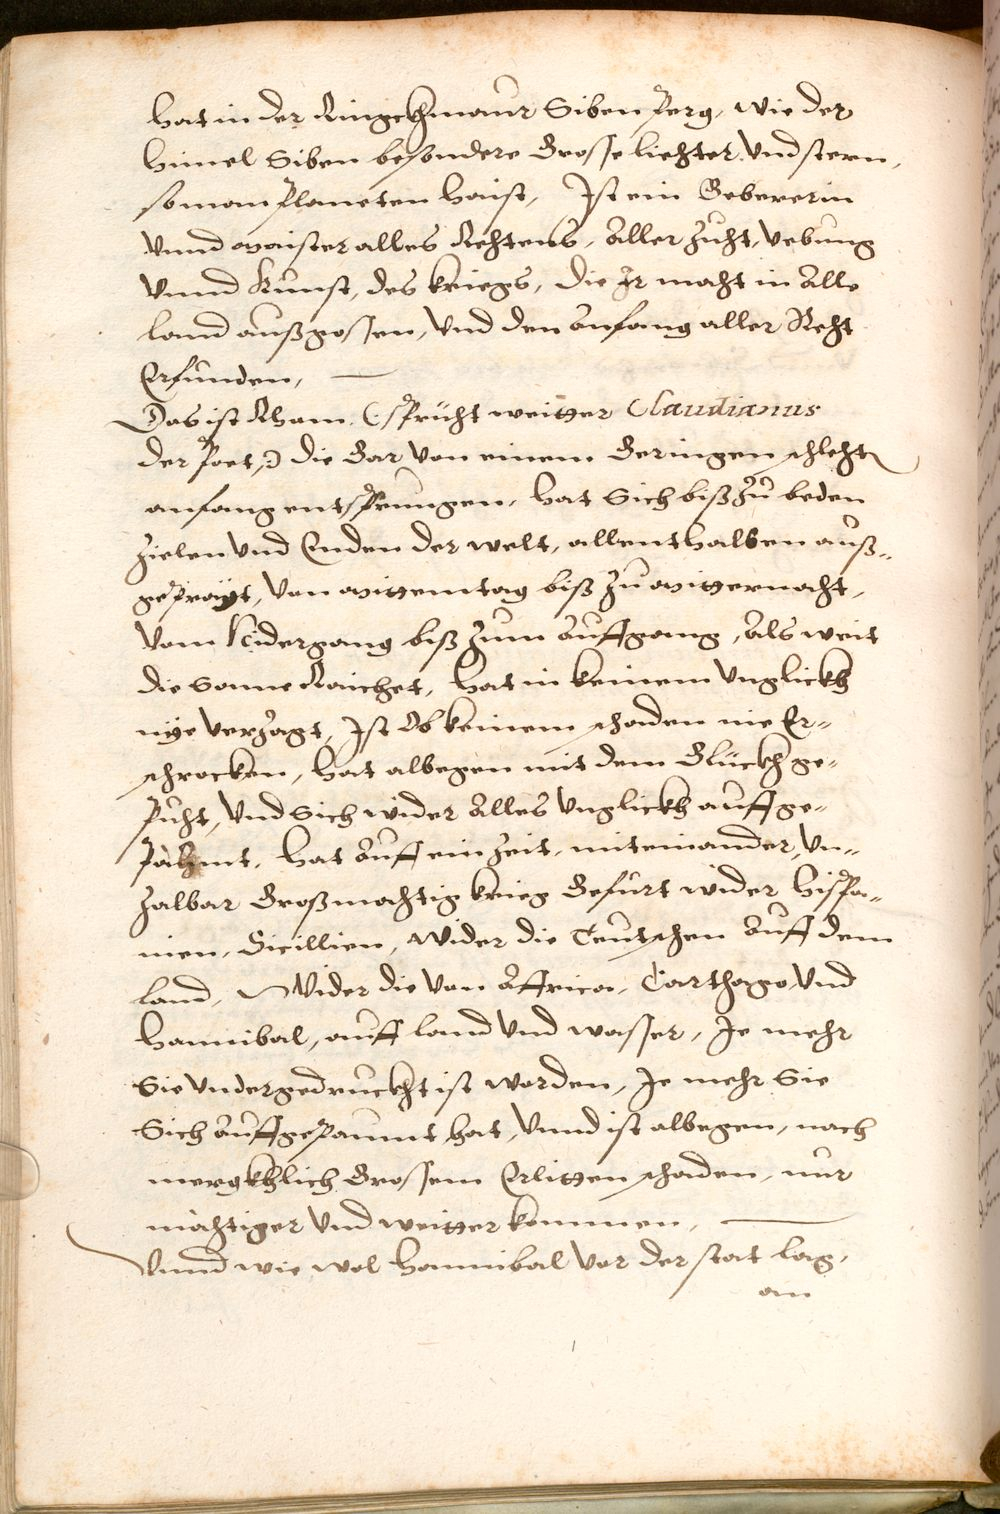 hat in der Ringckhmaur Siben Perg, wie der
himel Siben besondere Grosse liechter Und stern,
so man Planeten haist, Ist ein Gebererin
Unnd maister alles Rechtens, Aller Zucht, Uebung
Unnd Kunst, des kriegs, die Ir macht in Alle
land außgossen, Und den Anfang aller Recht
Erfunden,
Das ist Rham. (spricht weitter Claudianus
der Poet,) die Gar von einem Geringen schlecht
anfang entsprungen, hat Sich biß Zu beden
Zielen Und Enden der welt, allenthalben auß-
gesprayt, Von mittemtag biß Zu mitternacht,
Vom Nidergang biß Zum Auffgang, Als weit
die Sonne Raichet, hat in keinem Unglickh
nye verzagt, Ist Ob keinem schaden nie Er-
schrocken, hat albegen mit dem Glückh ge-
sucht, Und Sich wider Alles Unglickh auffge-
Pämt, hat Auff ein Zeit, miteinander, Un-
Zalbar Großmächtig krieg Gefürt wider hispa-
nien, Sicillien, Wider die Teutschen Auff dem
land, Wider die Von Affrica, Carthago, Und
Hannibal, auff land Und wasser, Je mehr
Sie Undergedruckht ist worden, Je mehr Sie
Sich Auffgepaumt hat, Unnd ist albegen, nach
mergkhlich Grossem Erlitten schaden, nur
mächtiger Und weitter kommen,
Unnd wie wol Hannibal Vor der stat lag,
an